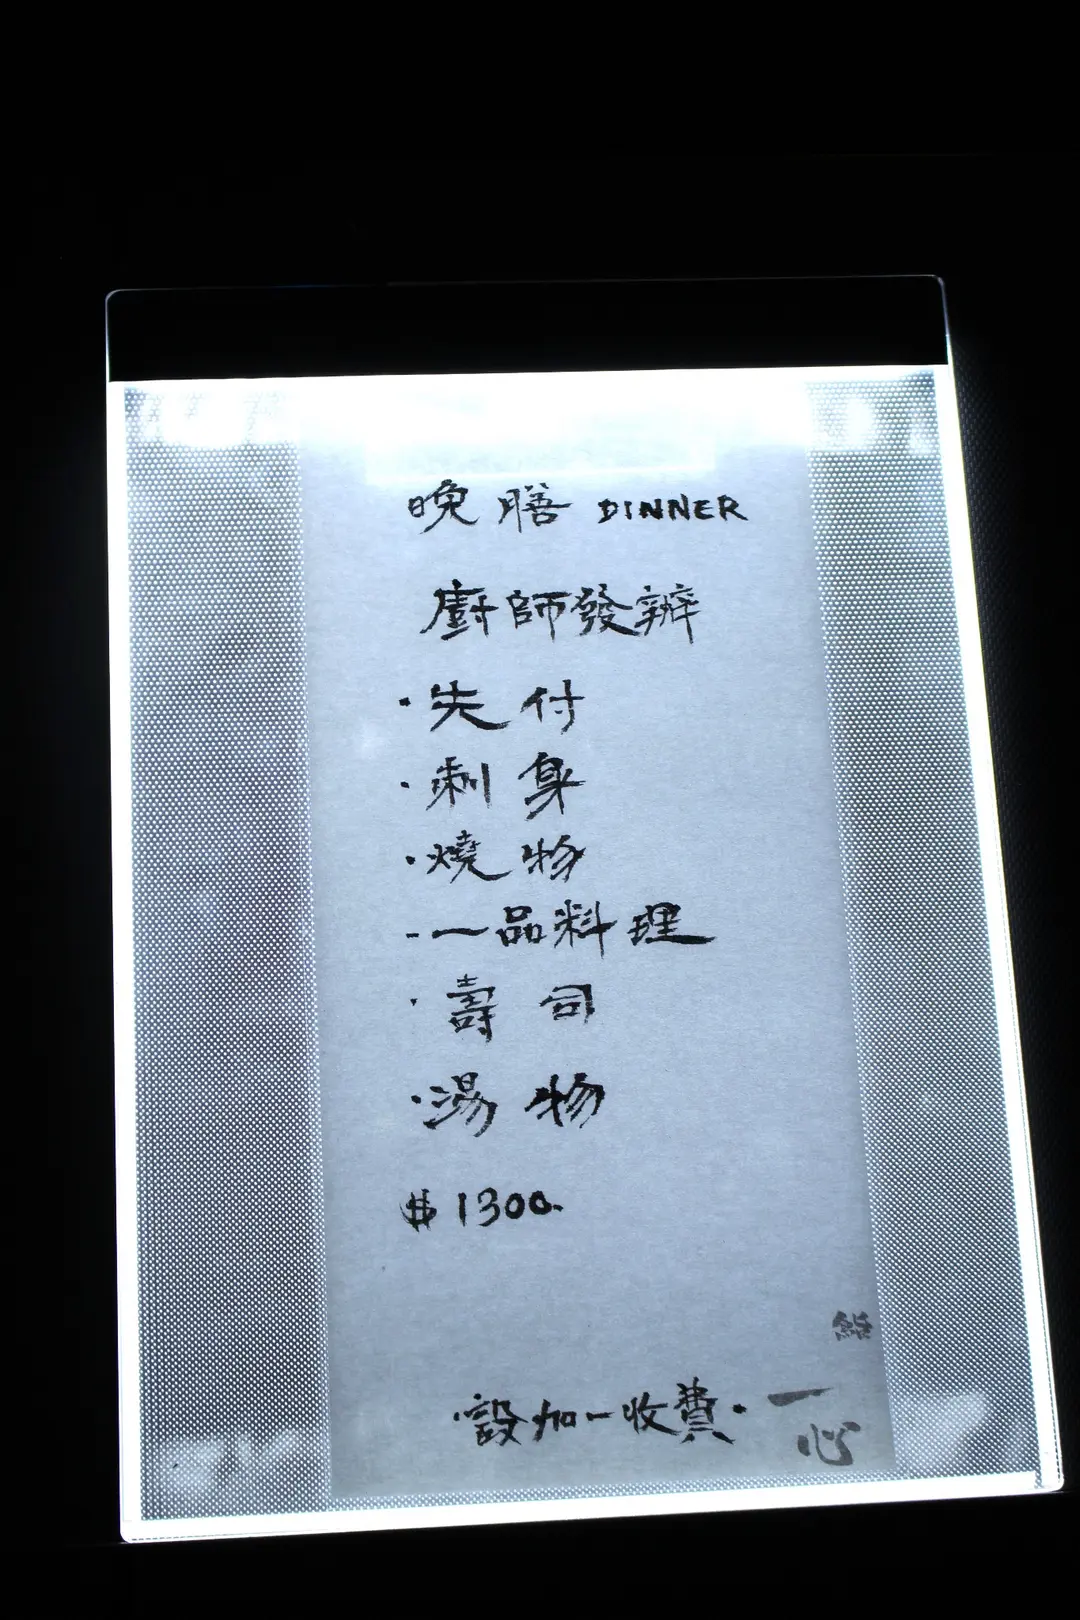 晚膳 DINNER
廚師發辦
·先付
·刺身
·燒物
-一品料理
·壽司
·湯物
$1300.
·設加一收費·
鮨
一心